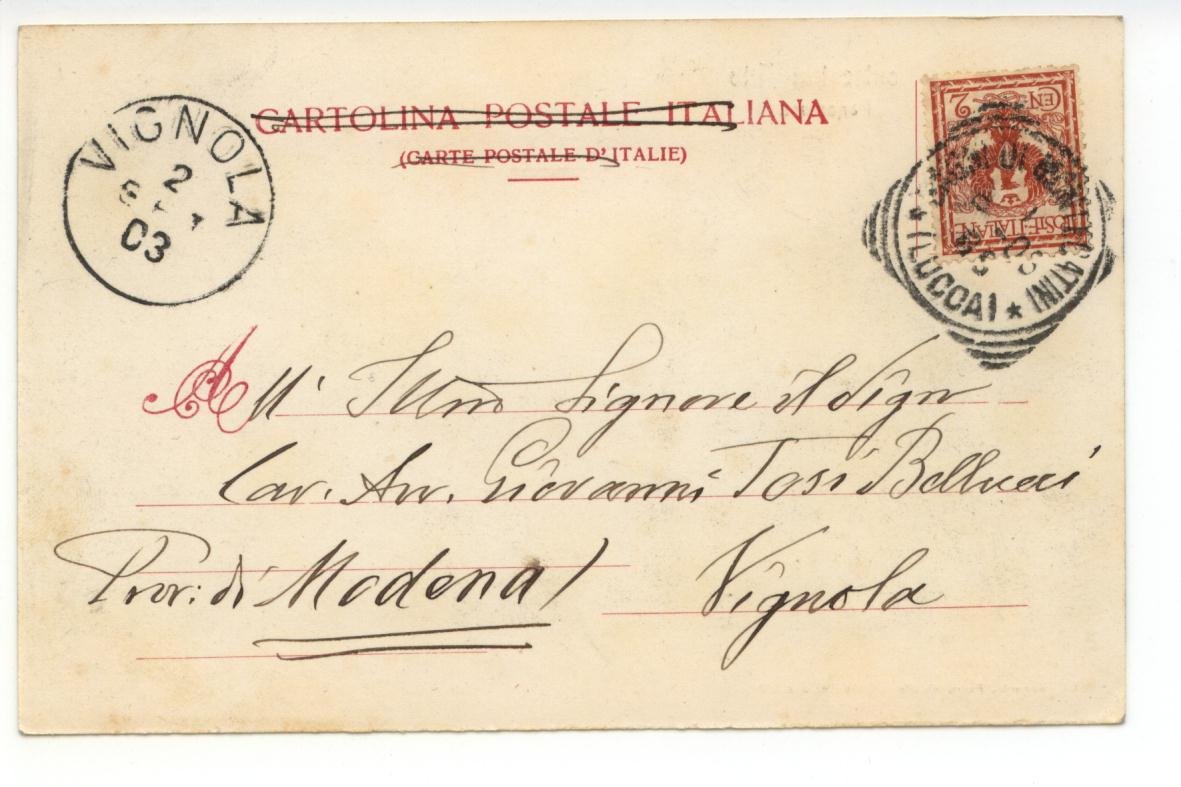 CARTOLINA POSTALE ITALIANA
(CARTE POSTALE D'ITALIE)
VIGNOLA
2
03
2
CEN
POSTE-ITALIANE
BAGNI DI MONTECATINI
* (LUCCA) *
All' Illmo Signore il Sigr
Cav. Avv. Giovanni Tosi Bellucci
Vignola
Prov: di Modena)